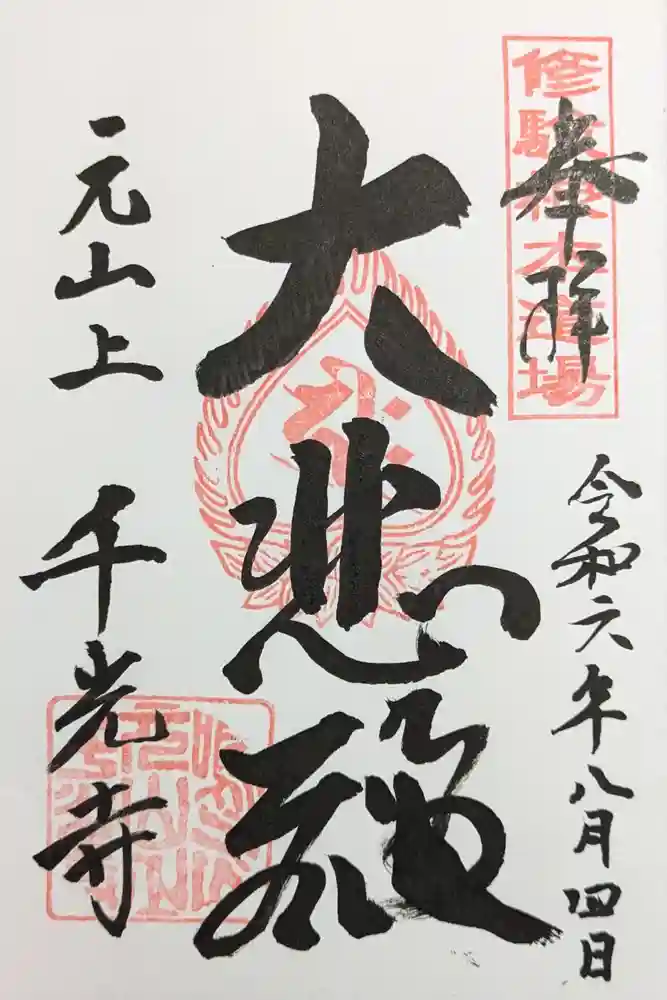 修験根本道場
奉拝
令和六年八月四日
大悲殿
元山上
千光寺